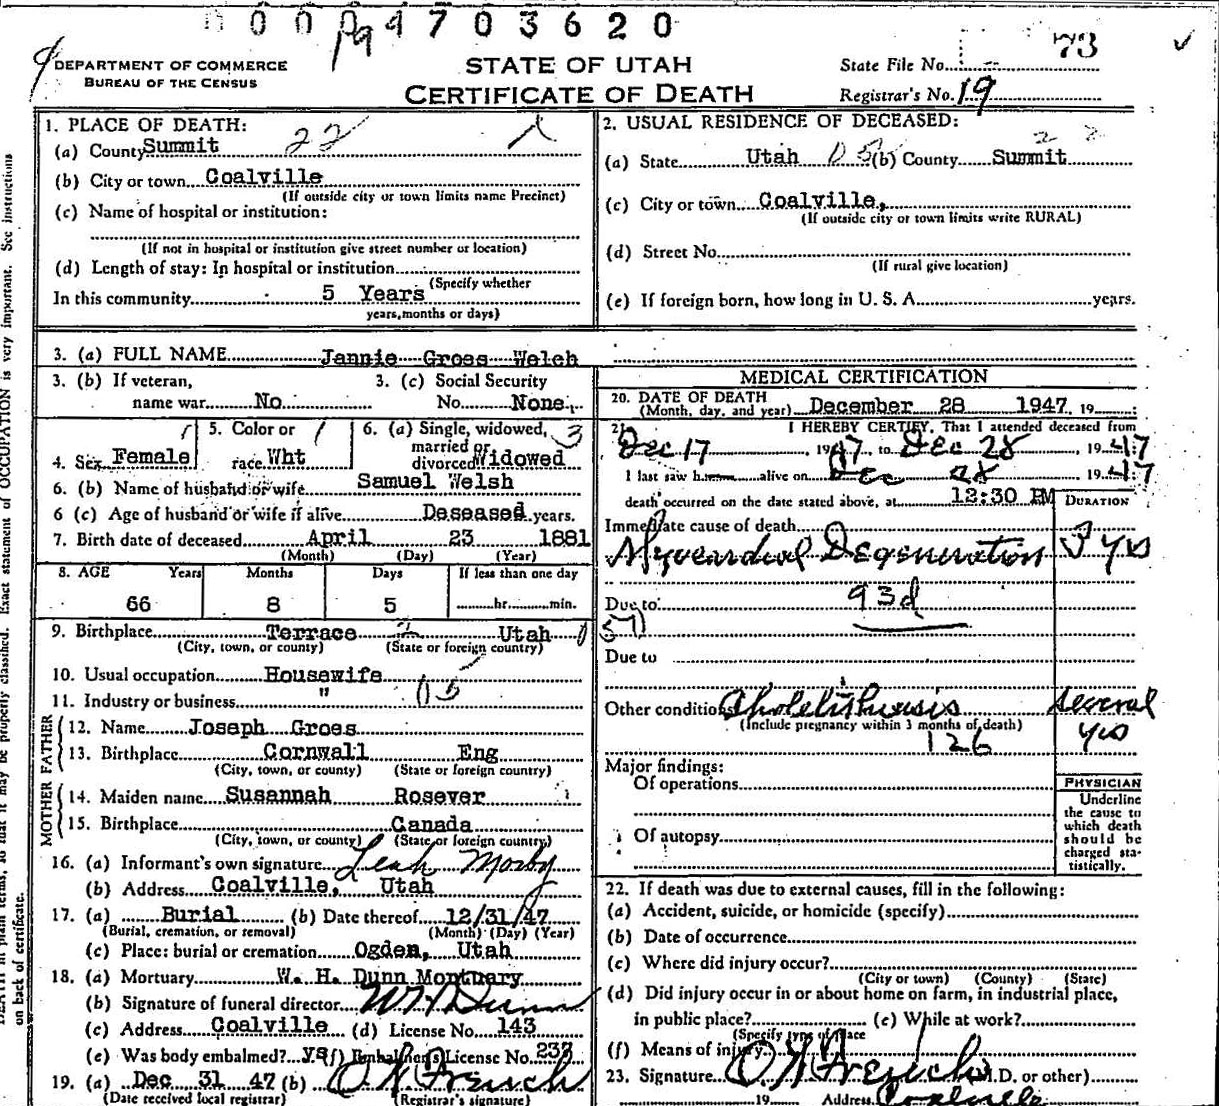 0 0 0 4 7 0 3 6 2 0
19
73
DEPARTMENT OF COMMERCE
BUREAU OF THE CENSUS
STATE OF UTAH
CERTIFICATE OF DEATH
State File No.
Registrar's No. 19
1. PLACE OF DEATH:
(a) County Summit 22
(b) City or town Coalville
(If outside city or town limits name Precinct)
(c) Name of hospital or institution:
(If not in hospital or institution give street number or location)
(d) Length of stay: In hospital or institution
(Specify whether
In this community 5 Years
years, months or days)
2. USUAL RESIDENCE OF DECEASED:
(a) State Utah (b) County Summit
(c) City or town Coalville,
(If outside city or town limits write RURAL)
(d) Street No.
(If rural give location)
(e) If foreign born, how long in U. S. A. years.
3. (a) FULL NAME Jannie Gross Welch
3. (b) If veteran, 3. (c) Social Security
name war No No. None.
4. Sex Female 5. Color or race Wht 6. (a) Single, widowed, married or divorced Widowed 3
6. (b) Name of husband or wife Samuel Welsh
6 (c) Age of husband or wife if alive Deseased years.
7. Birth date of deceased April 23 1881
(Month) (Day) (Year)
8. AGE Years Months Days If less than one day
66 8 5 hr. min.
9. Birthplace Terrace Utah
(City, town, or county) (State or foreign country)
10. Usual occupation Housewife
11. Industry or business "
FATHER
12. Name Joseph Gross
13. Birthplace Cornwall Eng
(City, town, or county) (State or foreign country)
MOTHER
14. Maiden name Susannah Rosever
15. Birthplace Canada
(City, town, or county) (State or foreign country)
16. (a) Informant's own signature Leah Morby
(b) Address Coalville, Utah
17. (a) Burial (b) Date thereof 12/31/47
(Burial, cremation, or removal) (Month) (Day) (Year)
(c) Place: burial or cremation Ogden, Utah
18. (a) Mortuary W. H. Dunn Mortuary
(b) Signature of funeral director W H Dunn
(c) Address Coalville (d) License No. 143
(e) Was body embalmed? yes (f) Embalmers License No. 233
19. (a) Dec 31 47 (b) O W French
(Date received local registrar) (Registrar's signature)
MEDICAL CERTIFICATION
20. DATE OF DEATH
(Month, day, and year) December 28 1947, 19
21. I HEREBY CERTIFY, That I attended deceased from
Dec 17, 1947 to Dec 28, 1947
I last saw h alive on Dec 28 1947
death occurred on the date stated above, at 12:30 PM
DURATION
Immediate cause of death
Myocardial Degeneration yrs
Due to 93d
Due to
Other conditions Cholelithiasis several
(Include pregnancy within 3 months of death) yrs
126
Major findings:
Of operations
Of autopsy
PHYSICIAN
Underline
the cause to
which death
should be
charged sta-
tistically.
22. If death was due to external causes, fill in the following:
(a) Accident, suicide, or homicide (specify)
(b) Date of occurrence
(c) Where did injury occur?
(City or town) (County) (State)
(d) Did injury occur in or about home on farm, in industrial place,
in public place? (e) While at work?
(Specify type of place
(f) Means of injury
23. Signature O W French (M.D. or other)
19 Address Coalville
Exact statement of OCCUPATION is very important. See instructions
DEATH in plain terms, so that it may be properly classified.
on back of certificate.